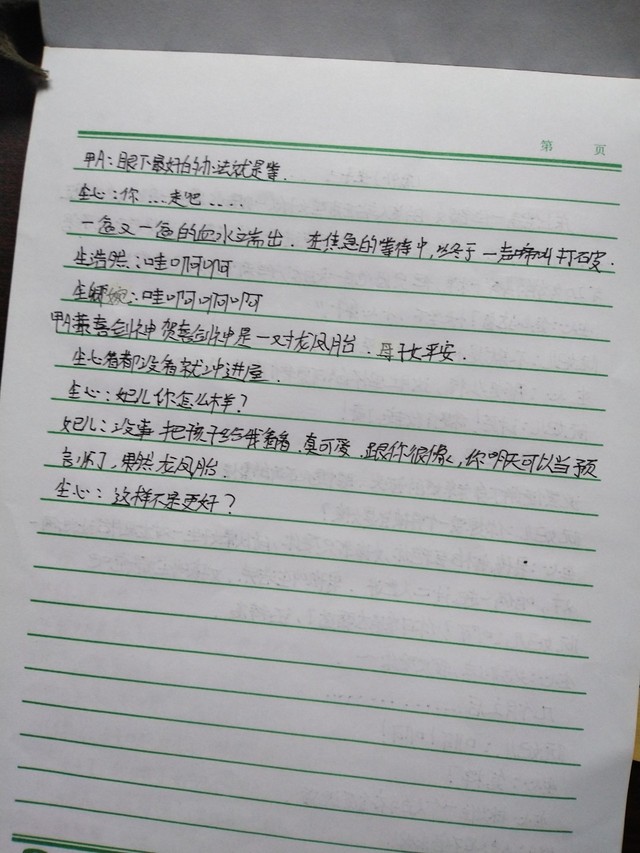 第 页
甲A:眼下最好的办法就是等.
尘心:你...走吧.....
一盆又一盆的血水端出.在焦急的等待中,终于一声啼叫打破.
尘浩然:哇啊啊啊
尘婉:哇啊啊啊啊
甲A:恭喜剑神 贺喜剑神是一对龙凤胎.母子女平安.
尘心看都没看就冲进屋.
尘心:妃儿你怎么样?
妃儿:没事 把孩子给我看看.真可爱.跟你很像,你明天可以当预
言师了,果然龙凤胎.
尘心:这样不是更好?